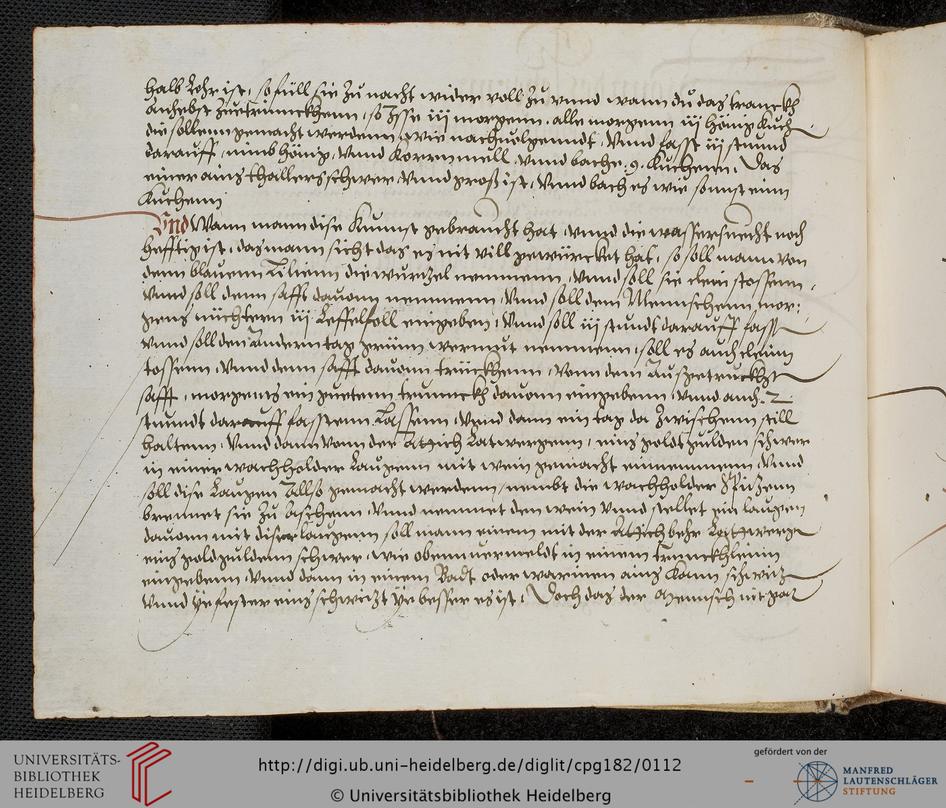 halb Lehr ist, so füll sie zu nacht wider voll zu vnnd wann du das tranckh
anhebst zuetrinnckhenn, so Isse iij morgenn, alle morgenn iij hönig kuch-
die sollenn gemacht werdenn, wie nachuolgenndt, Vnnd fasst iij stund
darauff, nimb hönig, vnnd Korrnmell, vnnd bache .9. Kuchenn, Das
einer ains thallers schwer, vnnd groß ist, vnnd bach es wie sonnst einn
Kuchenn
Vnd Wann mann dise Kunnst gebraucht hat, vnnd die wassersucht noch
hefftig ist, das mann sicht das es nit vill gewürcket hat, so soll mann von
denn blauenn Lilienn die wurtzel nemmenn, vnnd soll sie clein stossenn,
vnnd soll denn safft dauonn nemmenn, vnnd soll dem Mennschenn mor:
gens nüchtern iij Leffel foll eingeben, vnnd soll iij stundt darauff fasst
vnnd soll den Andern tag grüün wermut nemmenn, soll es auch clein
stossenn, vnnd denn safft dauonn trückhenn, vonn dem Außgetruckht
safft, morgents ein guetenn trunnckh dauonn eingebenn, vnnd auch .2.
stunndt darauff fasstenn Lassenn, vnnd dann ein tag da zwischenn still
haltenn, vnnd dann vonn der Attich Latwergenn, eins goldt gulden schwer
in einer wachholder Laugenn mit wein gemacht einnemmenn, vnnd
soll dise Laugen Allso gemacht werdenn, nembt die wachholder
brennet sie zu Aschenn, vnnd nemmet den wein vnnd stellet ein laugen
dauonn mit diser laugenn soll mann einem mit der Attich behr Lattwerge
eins goldguldenn schwer, wie obenn uermeldt in einem trunckhlein
eingebenn, vnnd dann in einem Badt oder warmen ains Kann schwitz
vnnd ye fester eins schwitzt ye besser es ist, Doch das der mennsch nit gar
UNIVERSITÄTS-
BIBLIOTHEK
HEIDELBERG
http://digi.ub.uni-heidelberg.de/diglit/cpg182/0112
© Universitätsbibliothek Heidelberg
gefördert von der
MANFRED
LAUTENSCHLÄGER
STIFTUNG